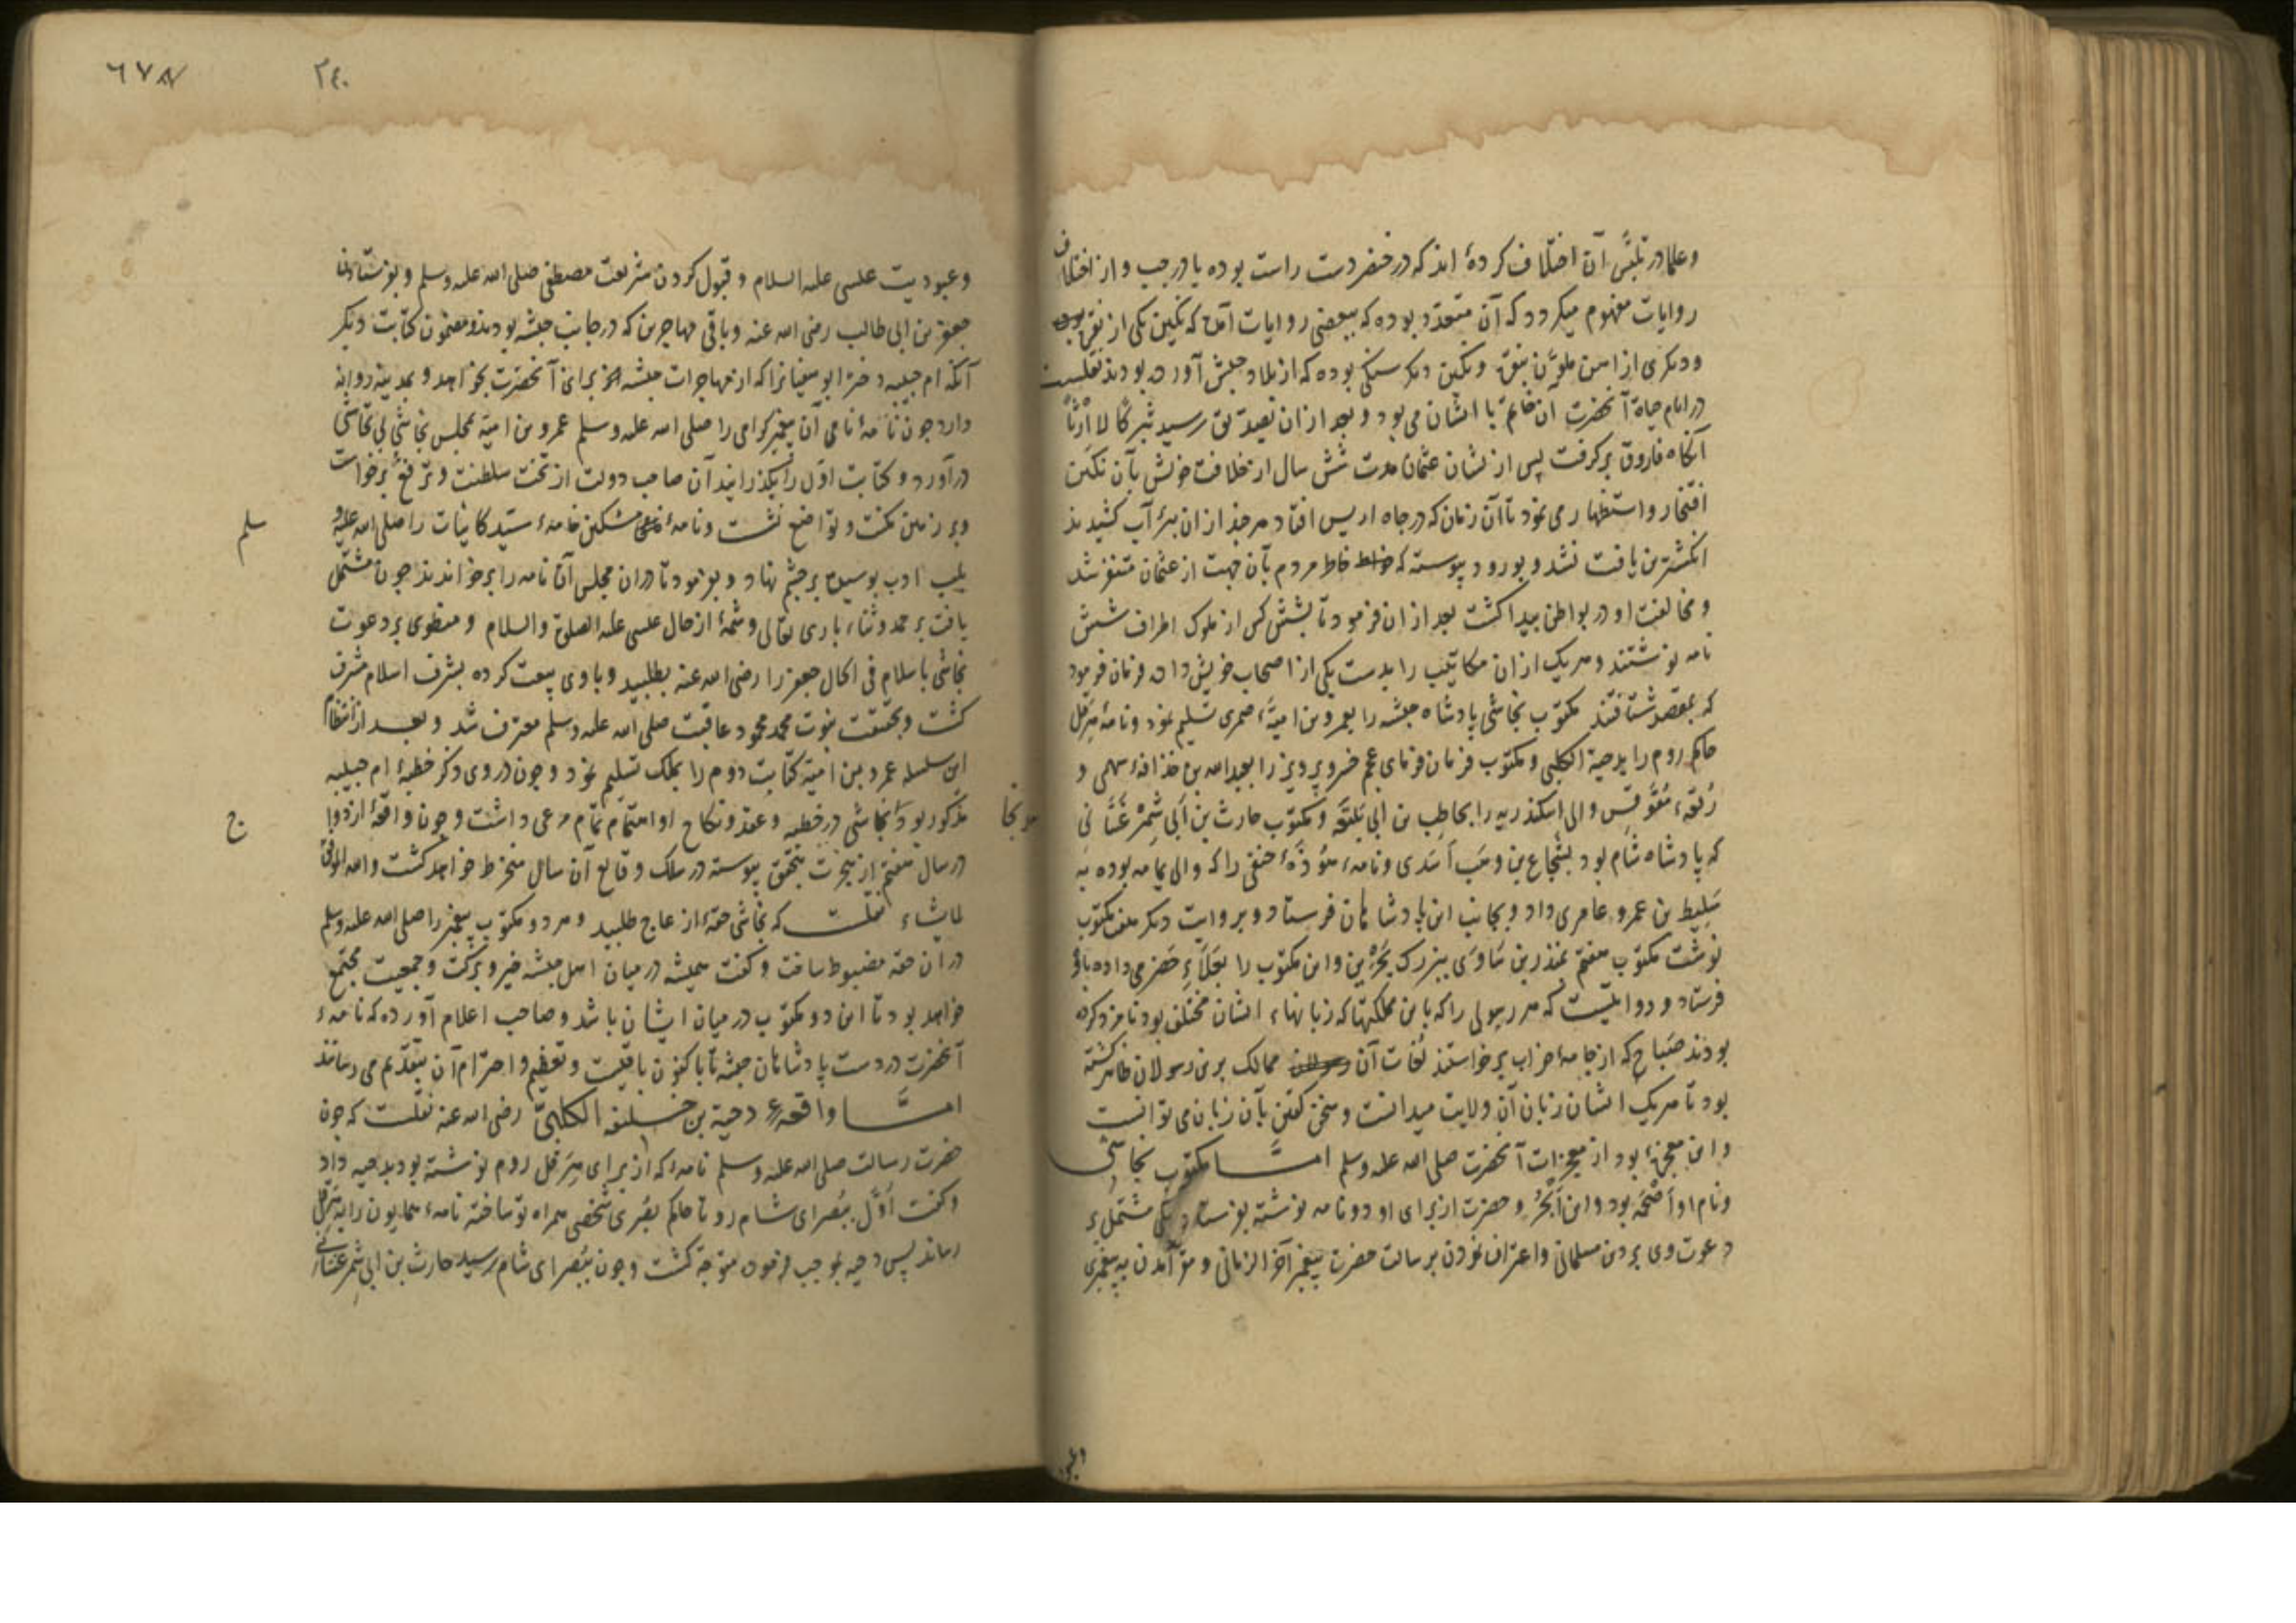 وعلما در تلبس آن اختلاف کرده اند که در خنصر دست راست بوده یا در چپ و از اختلاف
روایات مفهوم میکردد که آن متعدد بوده که ببعضی روایات آمده که نکین یکی از نقره بوده
ودیکری از آهن ملون بنقره ونکین دیکر سنکی بوده که از بلاد حبش آورده بودند نقلست
در ایام حیاة آنحضرت آن خاتم با ایشان می بود و بعد ازان بصدیق رسید تبرکا لا ارثا
آنکاه فاروق برکرفت پس از ایشان عثمان مدت شش سال از خلافت خویش بآن نکین
افتخار واستظهار می نمود تا آن زمان که در چاه اریس افتاد هر چند ازان بئر آب کشیدند
انکشترین یافت نشد و بورود پیوسته که خاطر مردم بآن جهت از عثمان متنفر شد
ومخالفت او در بواطن پیدا کشت بعد ازان فرمود تا بشش کس از ملوک اطراف شش
نامه نوشتند وهریک ازان مکاتیب را بدست یکی از اصحاب خویش داده فرمان فرمود
که بمقصد شتافتند مکتوب نجاشی پادشاه حبشه را بعمرو بن امیه ضمری تسلیم نمود ونامهٔ هرقل
حاکم روم را بدحیة الکلبی ومکتوب فرمان فرمای عجم خسرو پرویز را بعبدالله بن حذافهٔ سهمی و
رقعهٔ مقوقس والی اسکندریه را بحاطب بن ابی بلتعه ومکتوب حارث بن ابی شمر غسانی
که پادشاه شام بود بشجاع بن وهب اسدی ونامهٔ هوذهٔ حنفی را که والی یمامه بوده به
سلیط بن عمرو عامری داد وبجانب این پادشاهان فرستاد وبروایت دیکر هفت مکتوب
نوشت مکتوب هفتم بمنذر بن ساوی بزرک بحرین واین مکتوب را بعلاء حضرمی داده باو
فرستاد و روایتست که هر رسولی را که باین مملکتها که زبانهاء ایشان مختلف بود نامزد کرده
بودند صباح که از جامهٔ خواب برخواستند لغات آن ممالک برین رسولان ظاهر کشته
بود تا هریک ایشان زبان آن ولایت میدانست وسخن کفتن بآن زبان می توانست
واین معجزهٔ بود از معجزات آنحضرت صلی الله علیه وسلم امـا مکتوب نجاشی
ونام او اصحمه بود و ابن ابجر و حضرت از برای او دو نامه نوشته بفرستاد یکی مشتمل بر
دعوت وی بر دین مسلمانی واعتراف نمودن برسالت حضرت پیغمبر آخر الزمانی و مقر آمدن به پیغمبری
٢٤٠
وعبودیت عیسی علیه السلام و قبول کردن شریعت مصطفی صلی الله علیه وسلم و بفرستادن
جعفر بن ابی طالب رضی الله عنه وباقی مهاجرین که در جانب حبشه بودند ومضمون کتابت دیکر
آنکه ام حبیبه دختر ابوسفیانرا که از مهاجرات حبشه برای آنحضرت بخواهد و بمدینه روانه
دارد چون نامهٔ نامی آن پیغمبر کرامی را صلی الله علیه وسلم عمرو بن امیه بمجلس نجاشی
درآورد و کتابت اول را بکذرانید آن صاحب دولت از تخت سلطنت وترفع برخواست
وبر زمین مکنت و تواضع نشست ونامهٔ مشکین ختامهٔ سید کاینات را صلی الله علیه و
سلم
بلب ادب بوسیده بر چشم نهاد و بفرمود تا دران مجلس آن نامه را برخواندند چون مشتمل
یافت بر حمد وثناء باری تعالی وشمهٔ از حال عیسی علیه الصلوة والسلام و منطوی بر دعوت
نجاشی باسلام فی الحال جعفر را رضی الله عنه بطلبید وباوی بیعت کرده بشرف اسلام مشرف
کشت وبحقیقت نبوت محمد محمود عاقبت صلی الله علیه وسلم معترف شد وبعد از انتظام
این سلسله عمرو بن امیة کتابت دوم را بملک تسلیم نمود وچون در وی ذکر خطبهٔ ام حبیبه
مذکور بود نجاشی در خطبه وعقد ونکاح او اهتمام تمام مرعی داشت وچون واقعهٔ ازدوا
ج
در سال هفتم از هجرت بتحقق پیوسته در سلک وقایع آن سال منخرط خواهد کشت والله الموفق
لما یشاء نقلست که نجاشی حقهٔ از عاج طلبید وهر دو مکتوب پیغمبر را صلی الله علیه وسلم
دران حقه مضبوط ساخت وکفت همیشه در میان اهل حبشه خیر وبرکت وجمعیت مجتمع
خواهد بود تا این دو مکتوب در میان ایشان باشد وصاحب اعلام آورده که نامهٔ
آنحضرت در دست پادشاهان حبشه تا باکنون باقیست وتعظیم واحترام آن بتقدیم می رسانند
امـا واقعهٔ دحیة بن خلیفه الکلبی رضی الله عنه نقلست که چون
حضرت رسالت صلی الله علیه وسلم نامهٔ که از برای هرقل روم نوشته بود بدحیه داد
وکفت اول ببصرای شام رو تا حاکم بصری شخصی همراه تو ساخته نامهٔ همایون را بهرقل
رساند پس دحیه بموجب فرموده متوجه کشت وچون ببصرای شام رسید حارث بن ابی شمر غسانی